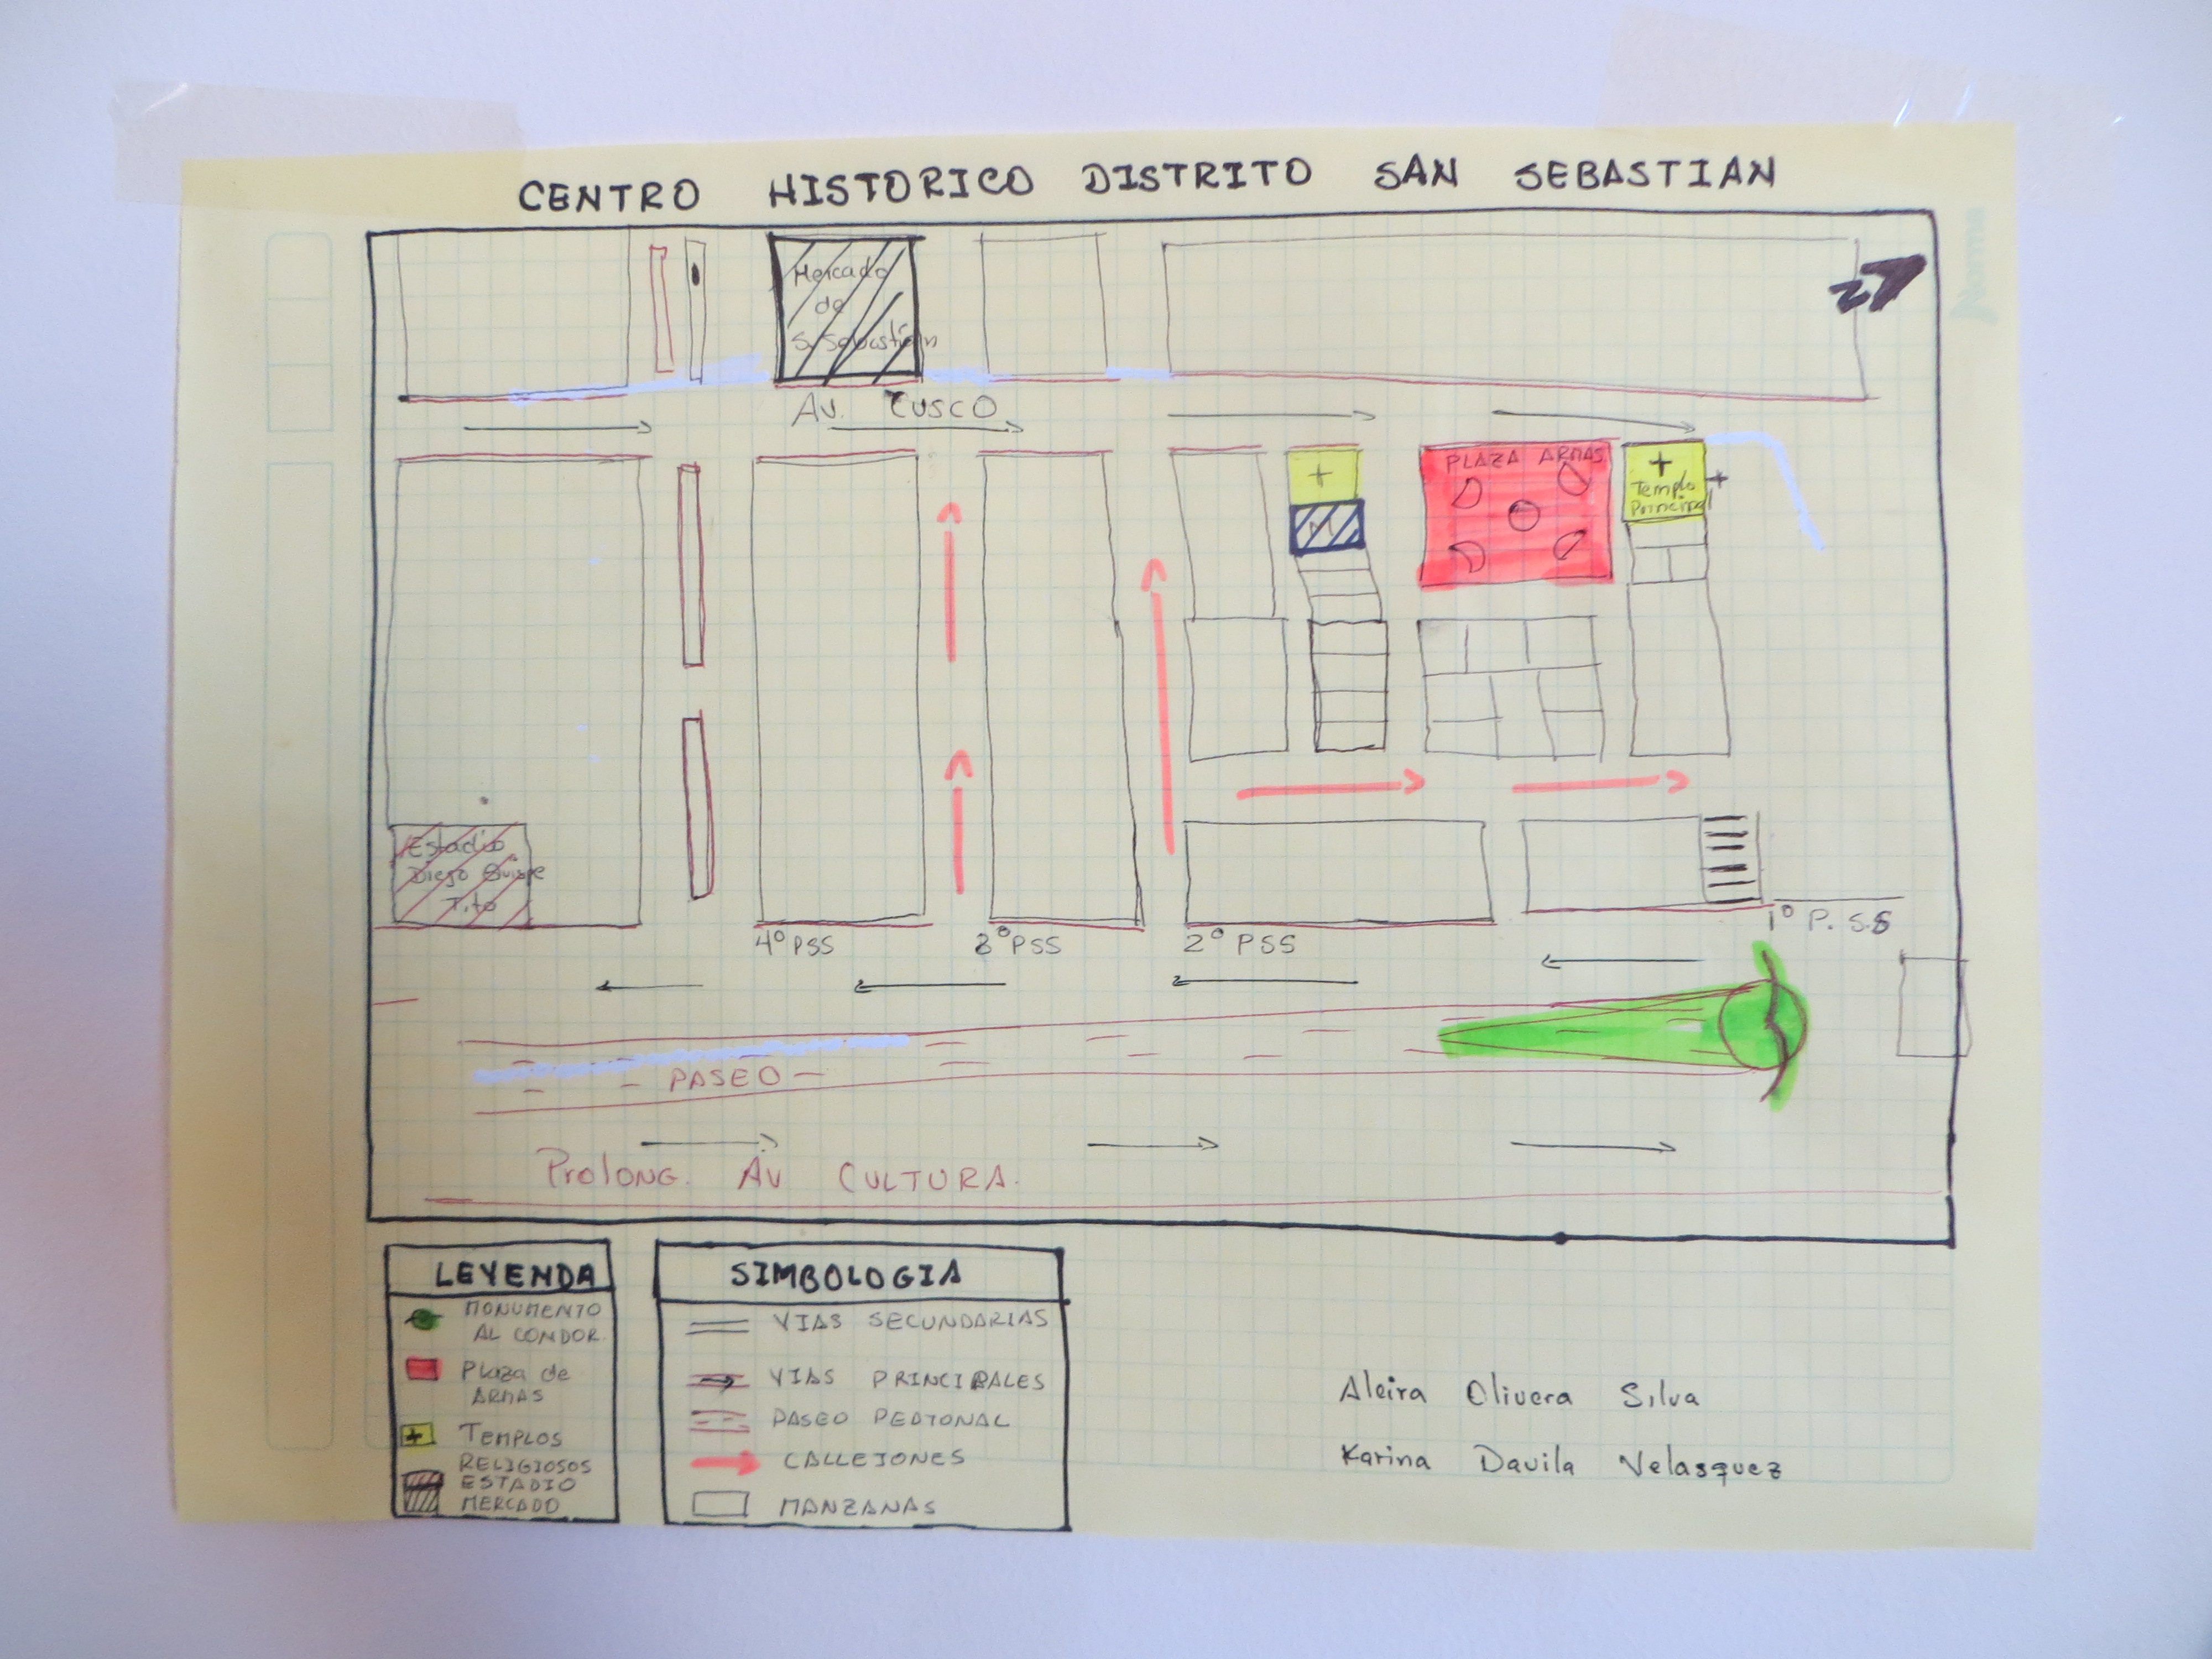 CENTRO HISTORICO DISTRITO SAN SEBASTIAN
Mercado
de
S. Sebastian
AV. CUSCO
PLAZA ARMAS
Templo
Principal
M
Estadio
Diego Quispe
Tito
4º PSS
3º PSS
2º PSS
1º P. S.S
- PASEO -
Prolong. Av CULTURA.
LEYENDA
MONUMENTO
AL CONDOR.
Plaza de
ARMAS
TEMPLOS
RELIGIOSOS
ESTADIO
MERCADO
SIMBOLOGIA
VIAS SECUNDARIAS
VIAS PRINCIPALES
PASEO PEATONAL
CALLEJONES
MANZANAS
Aleira Olivera Silva
Karina Davila Velasquez
Norma